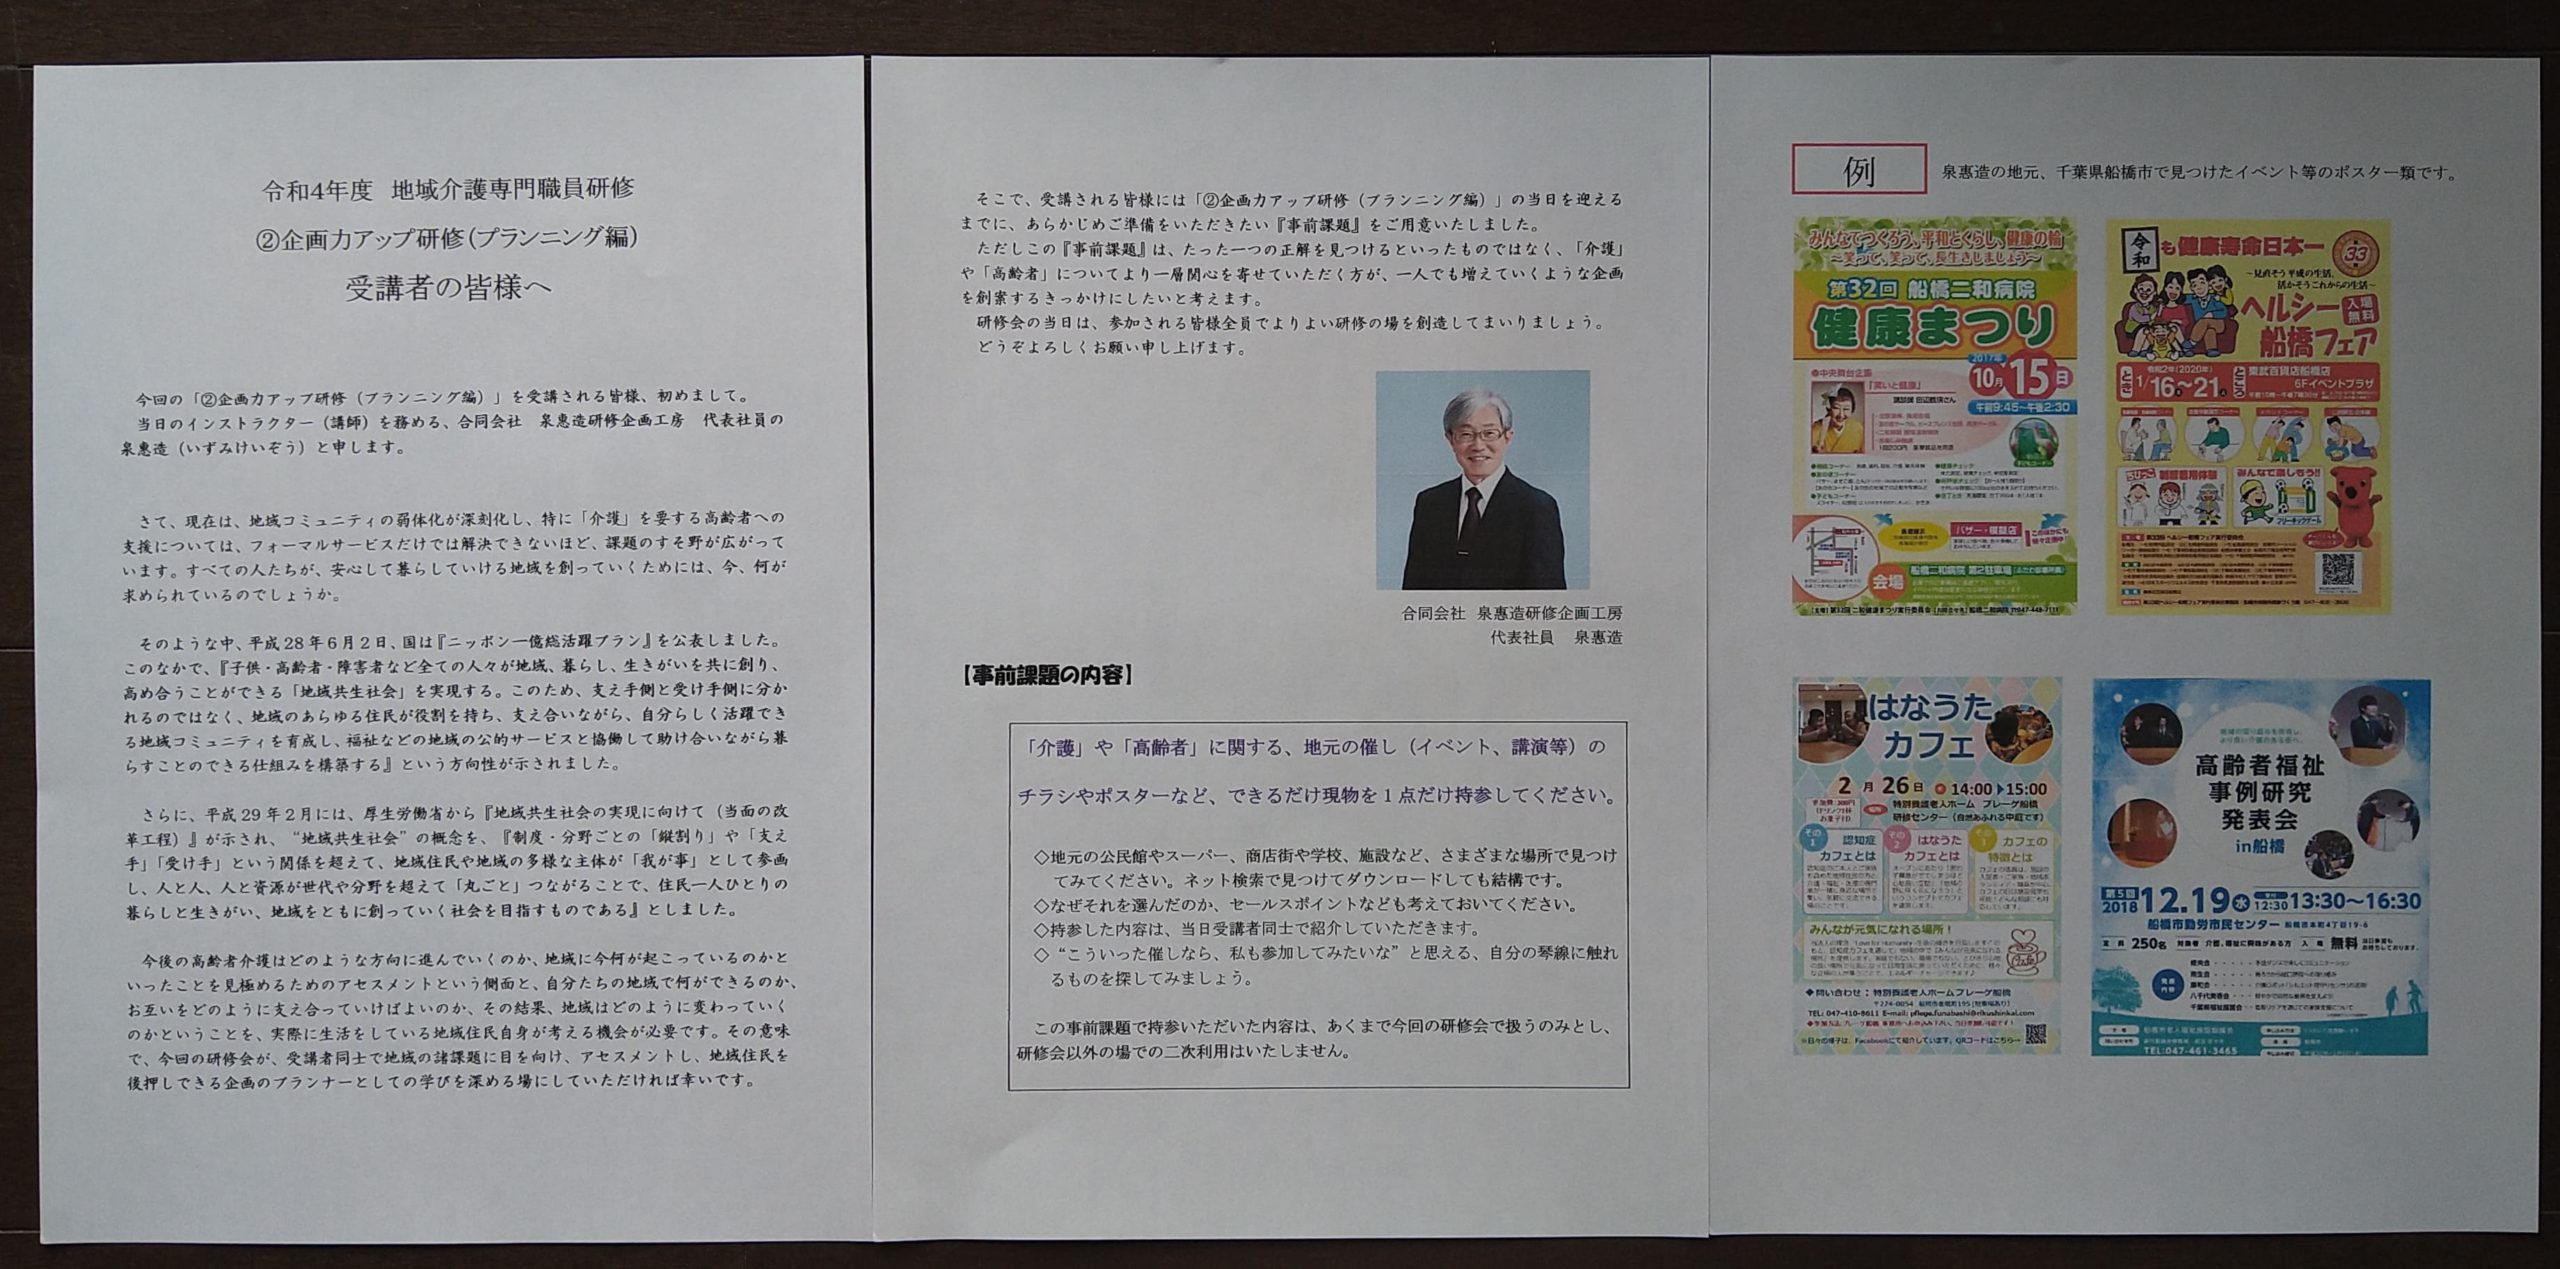 令和4年度　地域介護専門職員研修
②企画力アップ研修（プランニング編）
受講者の皆様へ
今回の「②企画力アップ研修（プランニング編）」を受講される皆様、初めまして。
当日のインストラクター（講師）を務める、合同会社　泉惠造研修企画工房　代表社員の
泉惠造（いずみけいぞう）と申します。
さて、現在は、地域コミュニティの弱体化が深刻化し、特に「介護」を要する高齢者への
支援については、フォーマルサービスだけでは解決できないほど、課題のすそ野が広がって
います。すべての人たちが、安心して暮らしていける地域を創っていくためには、今、何が
求められているのでしょうか。
そのような中、平成28年6月2日、国は『ニッポン一億総活躍プラン』を公表しました。
このなかで、『子供・高齢者・障害者など全ての人々が地域、暮らし、生きがいを共に創り、
高め合うことができる「地域共生社会」を実現する。このため、支え手側と受け手側に分か
れるのではなく、地域のあらゆる住民が役割を持ち、支え合いながら、自分らしく活躍でき
る地域コミュニティを育成し、福祉などの地域の公的サービスと協働して助け合いながら暮
らすことのできる仕組みを構築する』という方向性が示されました。
さらに、平成29年2月には、厚生労働省から『地域共生社会の実現に向けて（当面の改
革工程）』が示され、“地域共生社会”の概念を、『制度・分野ごとの「縦割り」や「支え
手」「受け手」という関係を超えて、地域住民や地域の多様な主体が「我が事」として参画
し、人と人、人と資源が世代や分野を超えて「丸ごと」つながることで、住民一人ひとりの
暮らしと生きがい、地域をともに創っていく社会を目指すものである』としました。
今後の高齢者介護はどのような方向に進んでいくのか、地域に今何が起こっているのかと
いったことを見極めるためのアセスメントという側面と、自分たちの地域で何ができるのか、
お互いをどのように支え合っていけばよいのか、その結果、地域はどのように変わっていく
のかということを、実際に生活をしている地域住民自身が考える機会が必要です。その意味
で、今回の研修会が、受講者同士で地域の諸課題に目を向け、アセスメントし、地域住民を
後押しできる企画のプランナーとしての学びを深める場にしていただければ幸いです。
そこで、受講される皆様には「②企画力アップ研修（プランニング編）」の当日を迎える
までに、あらかじめご準備をいただきたい『事前課題』をご用意いたしました。
ただしこの『事前課題』は、たった一つの正解を見つけるといったものではなく、「介護」
や「高齢者」についてより一層関心を寄せていただく方が、一人でも増えていくような企画
を創案するきっかけにしたいと考えます。
研修会の当日は、参加される皆様全員でよりよい研修の場を創造してまいりましょう。
どうぞよろしくお願い申し上げます。
合同会社　泉惠造研修企画工房
代表社員　泉惠造
【事前課題の内容】
「介護」や「高齢者」に関する、地元の催し（イベント、講演等）の
チラシやポスターなど、できるだけ現物を1点だけ持参してください。
◇地元の公民館やスーパー、商店街や学校、施設など、さまざまな場所で見つけ
てみてください。ネット検索で見つけてダウンロードしても結構です。
◇なぜそれを選んだのか、セールスポイントなども考えておいてください。
◇持参した内容は、当日受講者同士で紹介していただきます。
◇“こういった催しなら、私も参加してみたいな”と思える、自分の琴線に触れ
るものを探してみましょう。
この事前課題で持参いただいた内容は、あくまで今回の研修会で扱うのみとし、
研修会以外の場での二次利用はいたしません。
例
泉惠造の地元、千葉県船橋市で見つけたイベント等のポスター類です。
みんなでつくろう、平和とくらし、健康の輪
～笑って、笑って、長生きしましょう～
第32回 船橋二和病院
健康まつり
2017年
10月15日
午前9:45～午後2:30
●中央舞台企画
「笑いと健康」
バザー・模擬店
会場
船橋二和病院 第2駐車場
令和も健康寿命日本一
第33回
～見直そう平成の生活、
活かそうこれからの生活～
ヘルシー
船橋フェア
入場無料
とき
令和2年（2020年）
1/16～21
ところ
東武百貨店船橋店
6Fイベントプラザ
みんなで楽しもう!!
フリーキックゲーム
はなうた
カフェ
2月26日
14:00▶15:00
特別養護老人ホーム プレーゲ船橋
研修センター（自然あふれる中庭です）
その1
認知症
カフェとは
その2
はなうた
カフェとは
カフェの
特徴とは
みんなが元気になれる場所！
◆問い合わせ：特別養護老人ホームプレーゲ船橋
TEL: 047-410-8611 E-mail: pflege.funabashi@rikushinkai.com
※日々の様子は、Facebookにて紹介しています。QRコードはこちら→
高齢者福祉
事例研究
発表会
in船橋
第5回
2018
12.19水
12:30
13:30～16:30
船橋市勤労市民センター 船橋市本町4丁目19-6
定員 250名 対象者 介護、福祉に興味がある方 入場 無料
発表内容
TEL:047-461-3465